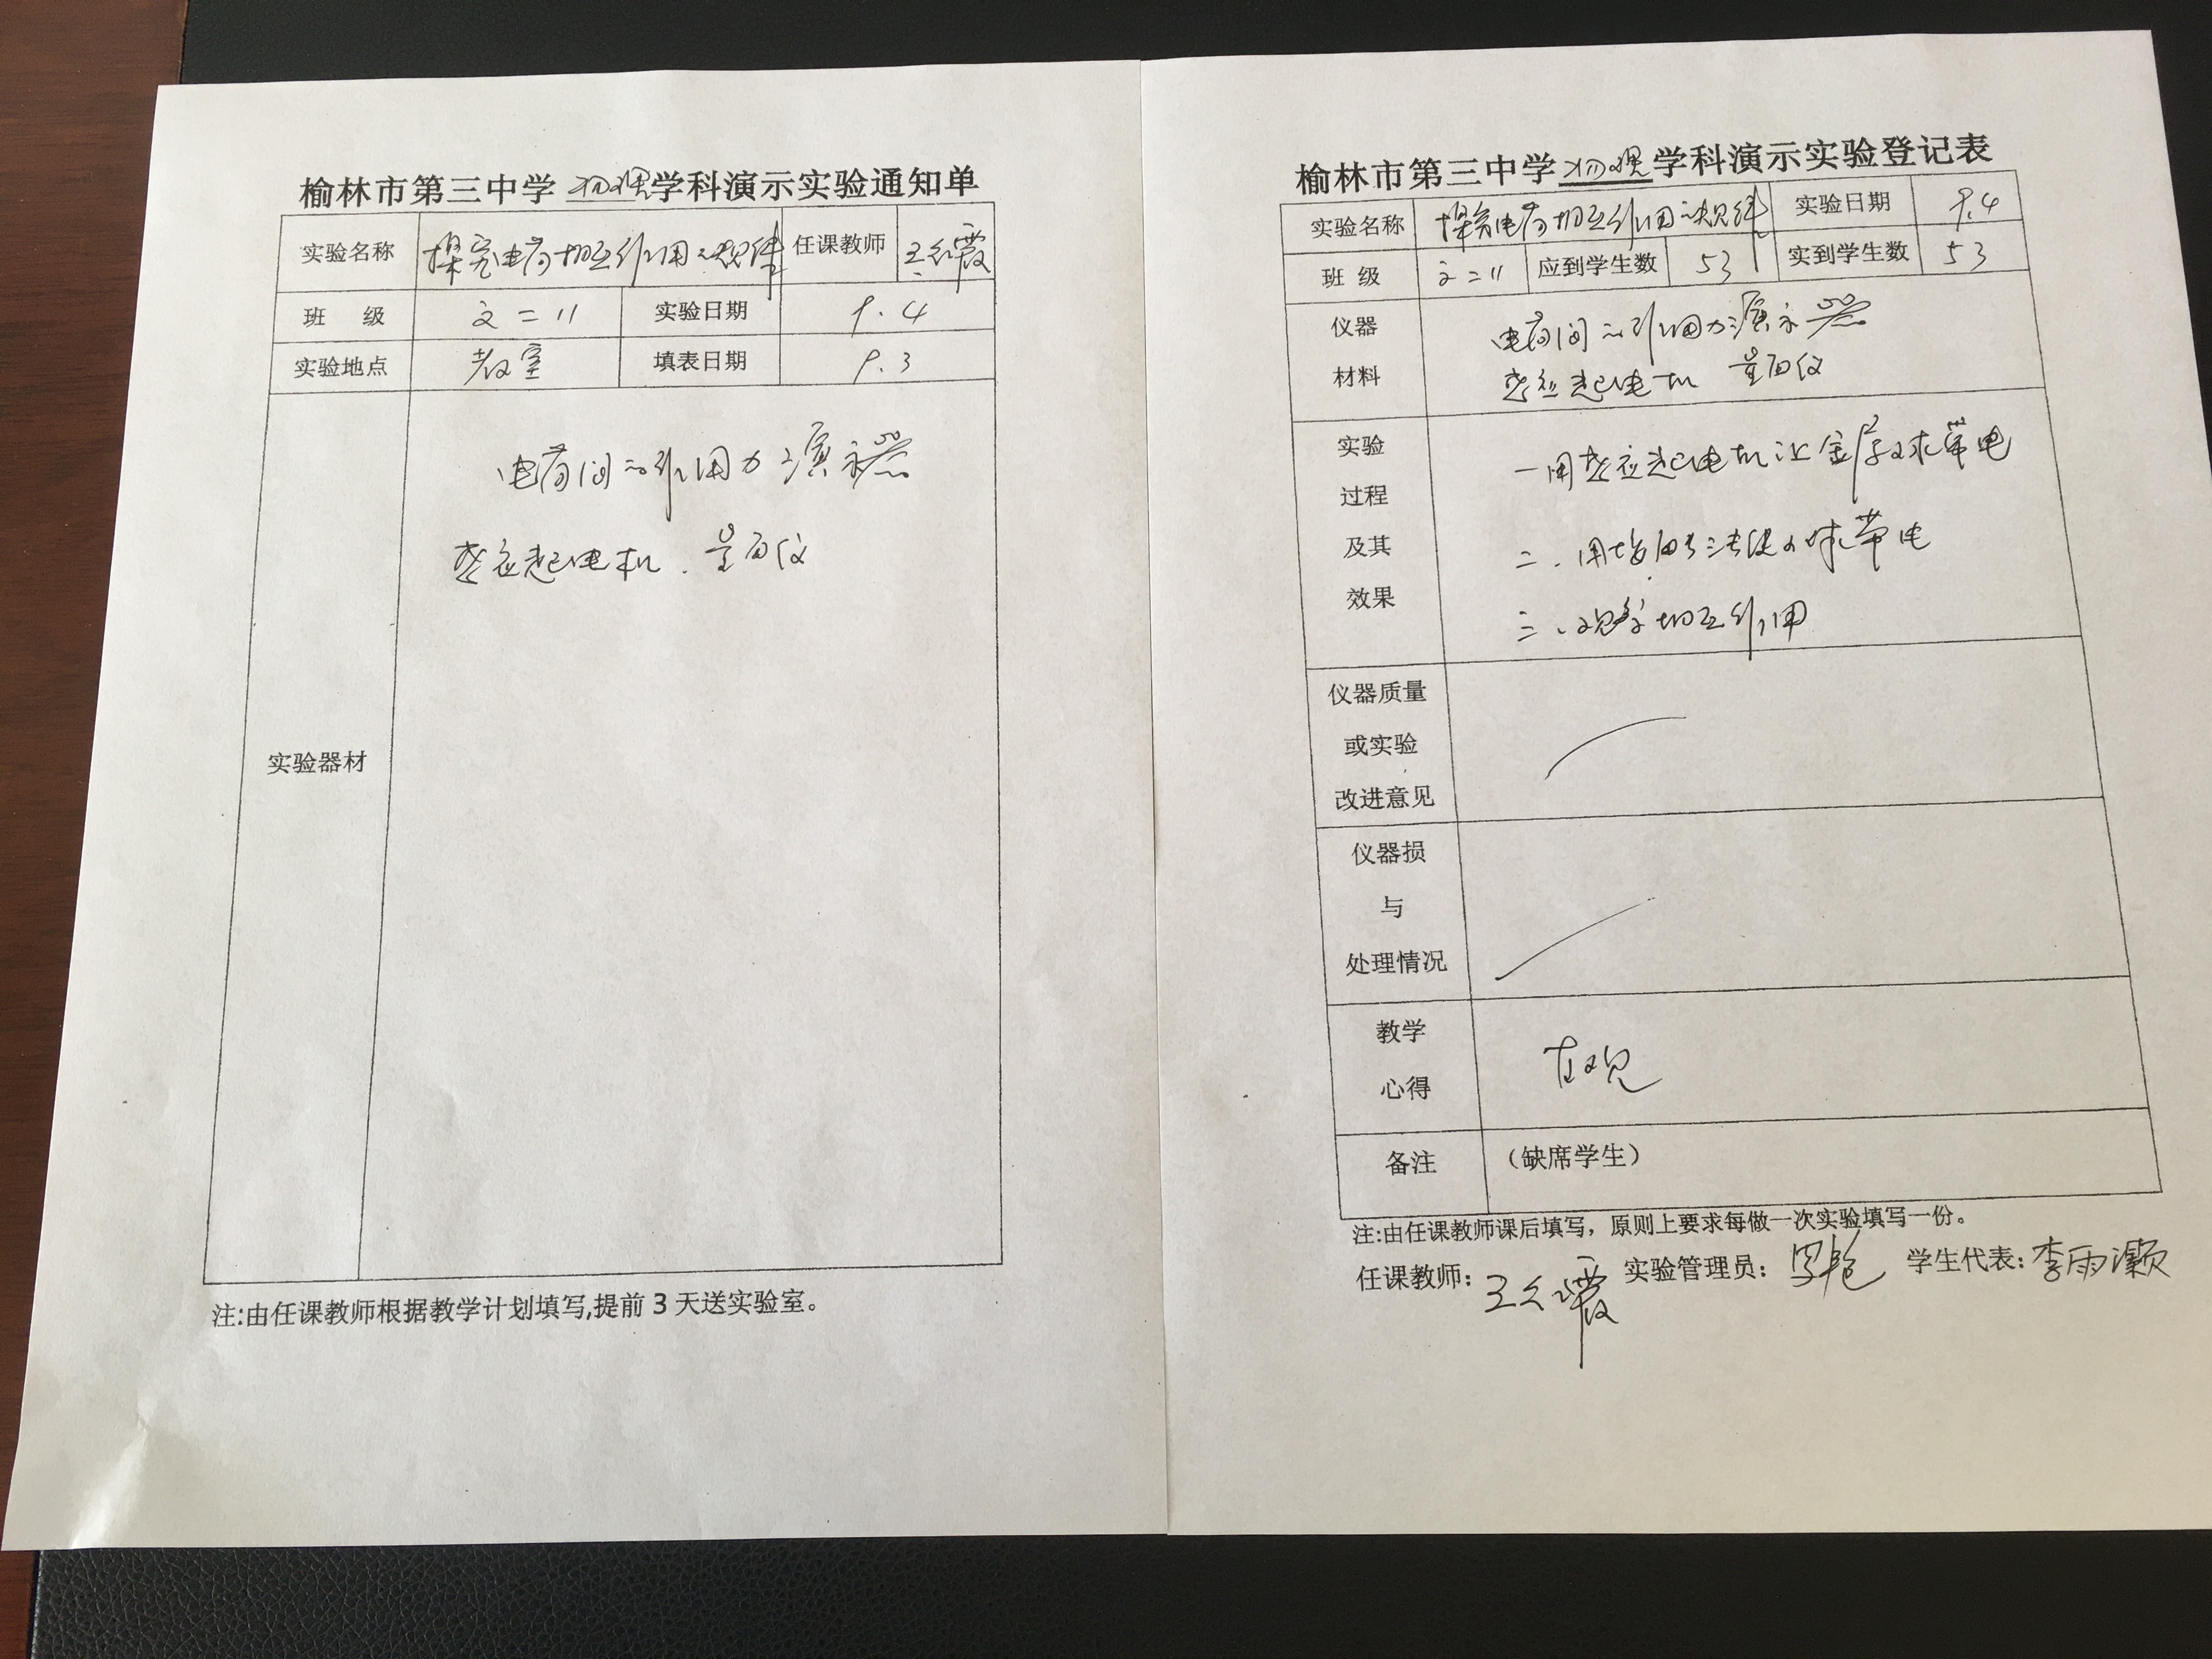 榆林市第三中学 物理 学科演示实验通知单
实验名称 探究电荷相互作用的规律 任课教师
班 级 高二11 实验日期 9.4
实验地点 教室 填表日期 9.3
实验器材
电荷间的作用力演示器
感应起电机、
注:由任课教师根据教学计划填写,提前3天送实验室。
榆林市第三中学 物理 学科演示实验登记表
实验名称 探究电荷相互作用的规律 实验日期 9.4
班 级 高二11 应到学生数 53 实到学生数 53
仪器
材料
电荷间的作用力演示器
感应起电机
实验
过程
及其
效果
一用感应起电机让金属球带电
二、用接触方法使小球带电
三、观察相互作用
仪器质量
或实验
改进意见
仪器损
与
处理情况
教学
心得
直观
备注
(缺席学生)
注:由任课教师课后填写，原则上要求每做一次实验填写一份。
任课教师: 实验管理员: 学生代表: 李雨灏